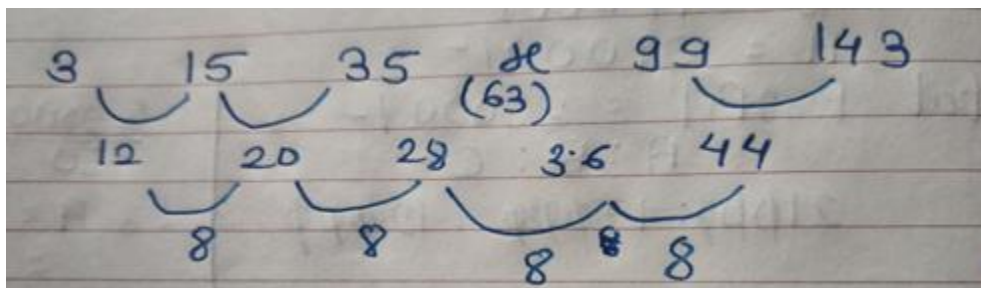 3 15 35 x 99 143
(63)
12 20 28 3.6 44
8 8 8 8